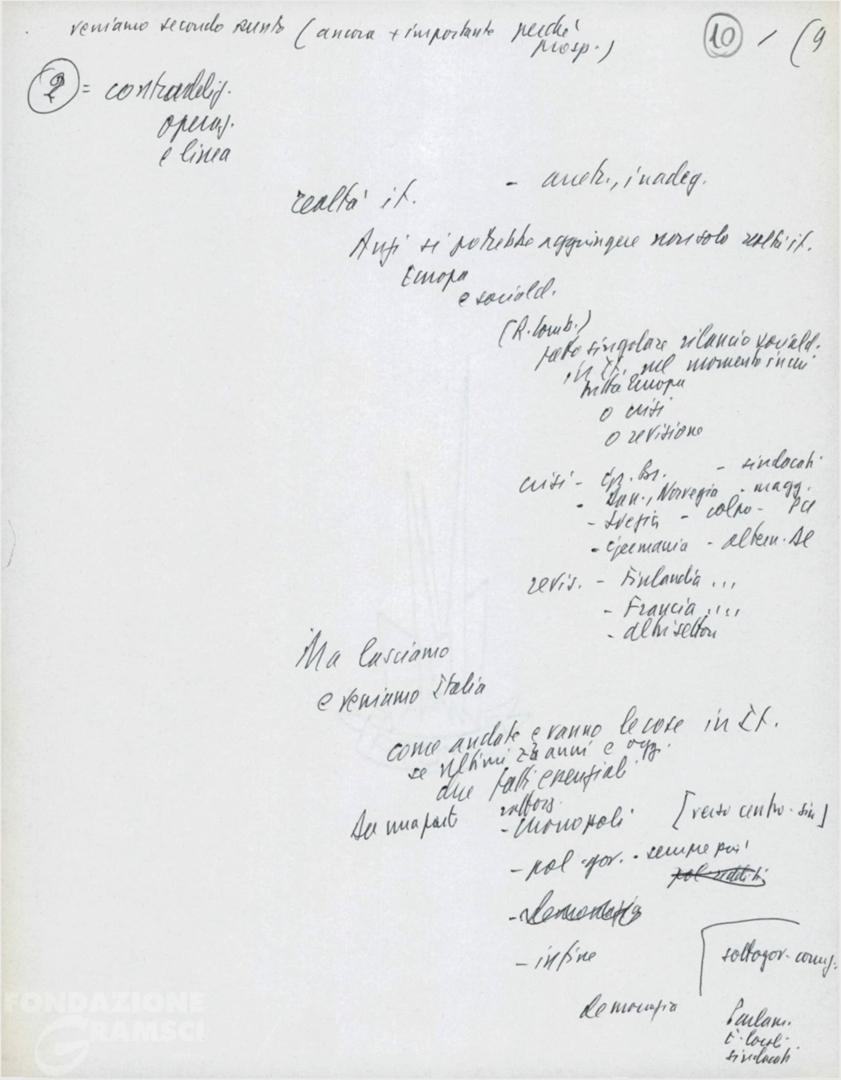 veniamo secondo punto (ancora + importante perché
prosp.)
10 / (9
2 = contraddiz.
operaz.
e linea
realtà it. - arretr., inadeg.
Anzi si potrebbe aggiungere non solo realtà it.
Europa
e sociald.
(R. Lomb.)
fatto singolare rilancio sociald.
in It. nel momento in cui
tutta Europa
o crisi
o revisione
crisi - Gr. Br. - sindacati
- Dan., Norvegia - magg.
- Svezia - colpo - PC
- Germania - altern.
revis. - Finlandia ...
- Francia ....
- altri settori
Ma lasciamo
e veniamo Italia
come andate e vanno le cose in It.
se ultimi anni e oggi.
due fatti essenziali
Da una parte rafforz.
- monopoli [verso centro-sin]
- pol. gov. - sempre più
pol. redditi
- Democrazia
- infine
sottogov. - corruz.
democrazia
Parlam.
E. locali
sindacati
FONDAZIONE
GRAMSCI